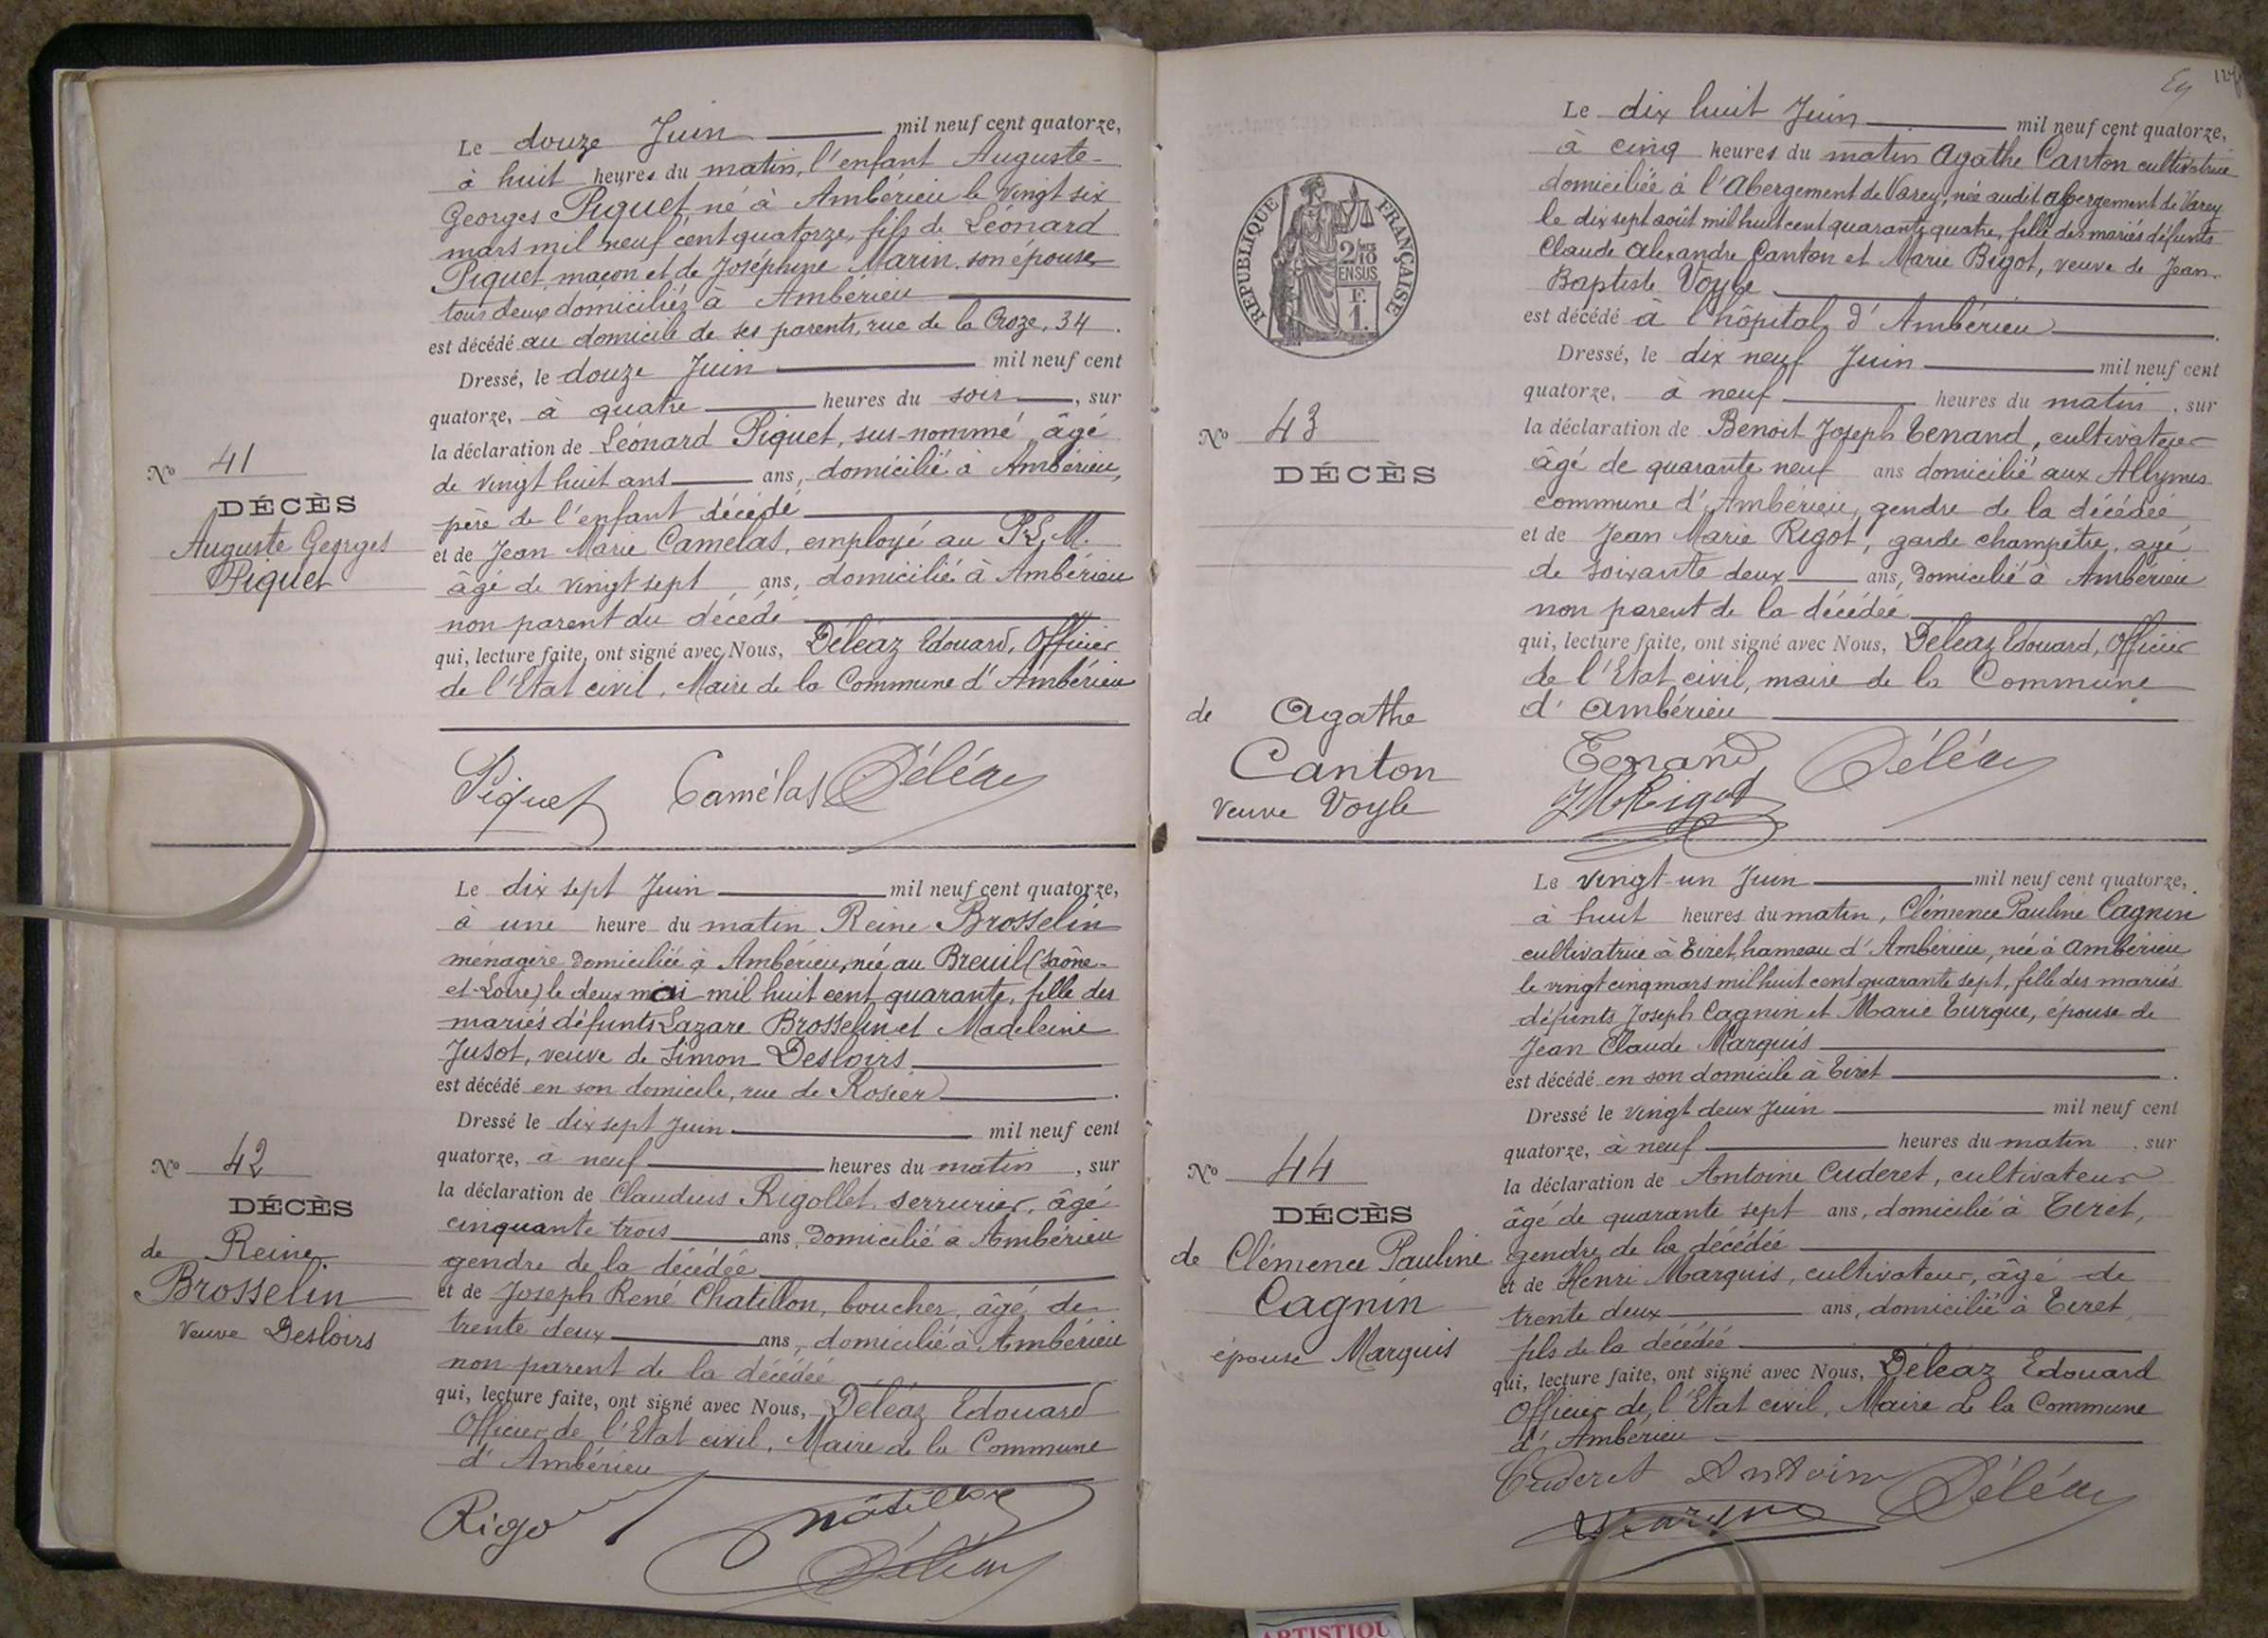 Le douze Juin mil neuf cent quatorze,
à huit heures du matin, l'enfant Auguste
Georges Piquet né à Ambérieu le vingt six
mars mil neuf cent quatorze, fils de Léonard
Piquet, maçon et de Joséphine Marin son épouse
tous deux domiciliés à Ambérieu
est décédé au domicile de ses parents, rue de la Croze, 34.
Dressé, le douze Juin mil neuf cent
quatorze, à quatre heures du soir, sur
la déclaration de Léonard Piquet, sus-nommé âgé
de vingt huit ans ans, domicilié à Ambérieu,
père de l'enfant décédé
et de Jean Marie Camelas, employé au P.L.M.
âgé de vingt sept ans, domicilié à Ambérieu
non parent du décédé
qui, lecture faite, ont signé avec Nous, Déléaz Edouard, Officier
de l'Etat civil, Maire de la Commune d'Ambérieu
No 41
DÉCÈS
Auguste Georges
Piquet
Piquet Camélas Déléaz
Le dix sept Juin mil neuf cent quatorze,
à une heure du matin Reine Brosselin
ménagère domiciliée à Ambérieu, née au Breuil (Saône-
et-Loire) le deux mai mil huit cent quarante, fille des
mariés défunts Lazare Brosselin et Madeleine
Jusot, veuve de Simon Desloirs
est décédé en son domicile, rue de Rosier.
Dressé le dix sept Juin mil neuf cent
quatorze, à neuf heures du matin, sur
la déclaration de Claudius Rigollet, serrurier, âgé
cinquante trois ans, domicilié à Ambérieu
gendre de la décédée
et de Joseph René Chatillon, boucher, âgé de
trente deux ans, domicilié à Ambérieu
non parent de la décédée
qui, lecture faite, ont signé avec Nous, Déléaz Edouard
Officier de l'Etat civil, Maire de la Commune
d'Ambérieu
No 42
DÉCÈS
de Reine
Brosselin
Veuve Desloirs
Déléaz
RÉPUBLIQUE FRANÇAISE
2/10
EN SUS
F.
1.
Le dix huit Juin mil neuf cent quatorze,
à cinq heures du matin Agathe Canton cultivatrice
domiciliée à l'Abergement de Varey, née audit abergement de Varey
le dix sept août mil huit cent quarante quatre, fille des mariés défunts
Claude Alexandre Canton et Marie Bigot, veuve de Jean
Baptiste Voyle
est décédé à l'hôpital d'Ambérieu.
Dressé, le dix neuf Juin mil neuf cent
quatorze, à neuf heures du matin, sur
la déclaration de Benoit Joseph Tenand, cultivateur
âgé de quarante neuf ans domicilié aux Allymes
commune d'Ambérieu, gendre de la décédée
et de Jean Marie Rigot, garde champêtre, agé
de soixante deux ans, domicilié à Ambérieu
non parent de la décédée
qui, lecture faite, ont signé avec Nous, Deleaz Edouard, Officier
de l'Etat civil, maire de la Commune
d'Ambérieu
No 43
DÉCÈS
de Agathe
Canton
Veuve Voyle
Tenand Déléaz
JM Rigot
Le vingt-un Juin mil neuf cent quatorze,
à huit heures du matin, Clémence Pauline Cagnin
cultivatrice à Tiret, hameau d'Ambérieu, née à Ambérieu
le vingt cinq mars mil huit cent quarante sept, fille des mariés
défunts Joseph Cagnin et Marie Turgue, épouse de
Jean Claude Marquis
est décédé en son domicile à Tiret.
Dressé le vingt deux Juin mil neuf cent
quatorze, à neuf heures du matin, sur
la déclaration de Antoine Cuderet, cultivateur
âgé de quarante sept ans, domicilié à Tiret,
gendre de la décédée
et de Henri Marquis, cultivateur, âgé de
trente deux ans, domicilié à Tiret,
fils de la décédée
qui, lecture faite, ont signé avec Nous, Déléaz Edouard
Officier de l'Etat civil, Maire de la Commune
d'Ambérieu
No 44
DÉCÈS
de Clémence Pauline
Cagnin
épouse Marquis
Cuderet Antoine Déléaz
ARTISTIQU